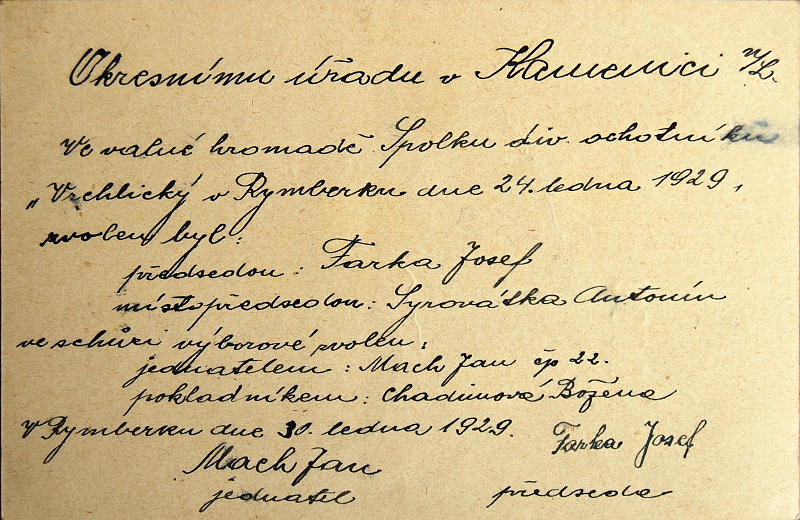 Okresnímu úřadu v Kamenici n/L.
Ve valné hromadě Spolku div. ochotníků
„Vrchlický v Rymberku dne 24. ledna 1929,
zvolen byl:
předsedou: Farka Josef
místopředsedou: Syrovátka Antonín
ve schůzi výborové zvolen:
jednatelem: Mach Jan čp 22.
pokladníkem: Chadimová Božena
V Rymberku dne 30. ledna 1929.
Mach Jan
jednatel
Farka Josef
předseda